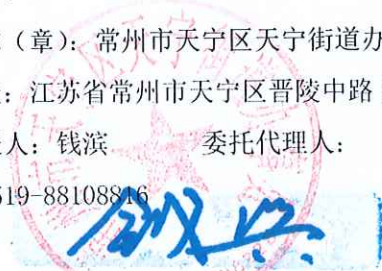 （章）：常州市天宁区天宁街道办
：江苏省常州市天宁区晋陵中路
人：钱滨 委托代理人：
519-88108816